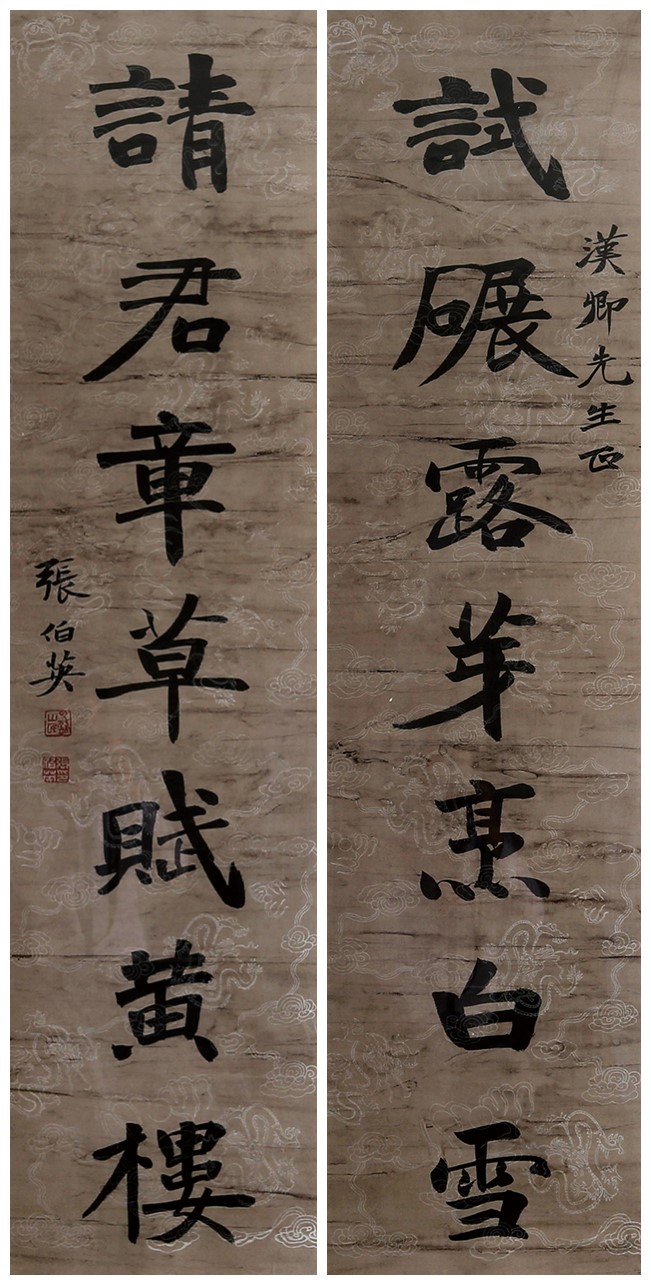 漢卿先生正
試碾露芽烹白雪
請君章草賦黄樓
張伯英